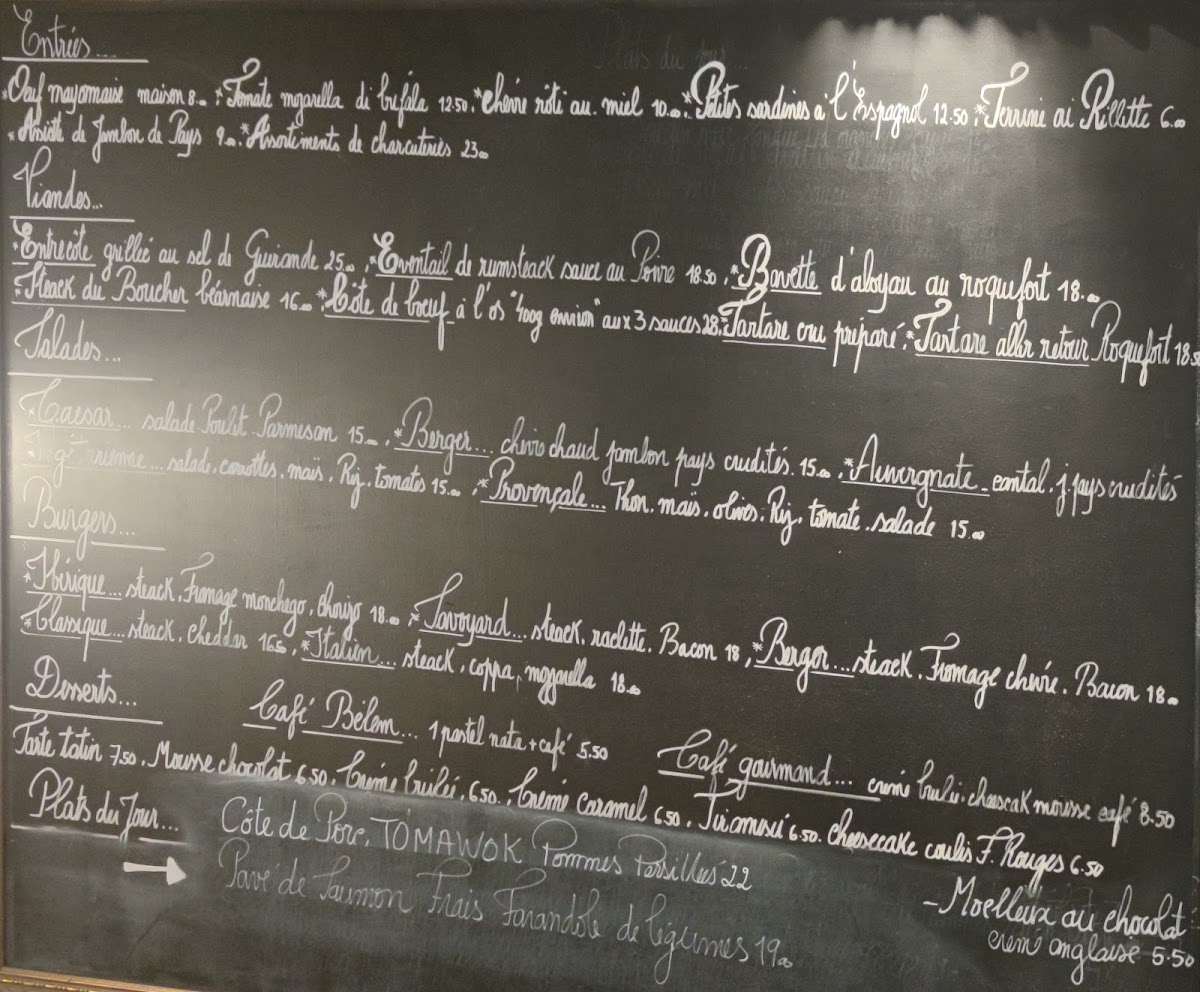 Entrées....
*Oeuf mayonnaise maison 8.00 *Tomate mozarella di bufala 12.50 *chèvre rôti au miel 10.00 *Petites sardines à l'Espagnol 12.50 *Terrine ou Rillette 6.00
*Assiette de Jambon de Pays 9.00 *Assortiments de charcuteries 23.00
Viandes...
*Entrecôte grillée au sel de Guérande 25.00, *Eventail de rumsteack sauce au Poivre 18.50, *Bavette d'aloyau au roquefort 18.00
*Steack du Boucher béarnaise 16.00 *Côte de boeuf à l'os "400g environ" aux 3 sauces 28. *Tartare cru préparé. *Tartare aller retour Roquefort 18.50
Salades...
*Caesar... salade Poulet Parmesan 15.00, *Berger... chèvre chaud jambon pays crudités. 15.00, *Auvergnate - cantal. j. pays crudités
Végétarienne... salade. carottes. maïs. Riz. tomates 15.00, *Provençale... Thon. maïs. olives. Riz. tomate. salade 15.00
Burgers...
*Ibérique... steack. Fromage monchego. chorizo 18.00, *Savoyard... steack. raclette. Bacon 18, *Berger... steack. Fromage chèvre. Bacon 18.00
*Classique... steack. cheddar 16.50, *Italien... steack. coppa, mozzarella 18.00
Desserts...
Café Bélem... 1 pastel nata + café 5.50
Café gourmand... creme brulée. cheescak mousse café 8.50
Tarte tatin 7.50. Mousse chocolat 6.50. Crème brulée. 6.50. Crème Caramel 6.50. Tiramisu 6.50. cheesecake coulis F. Rouges 6.50
Plats du Jour...
Côte de Porc. TOMAWOK Pommes Persillées 22
Pavé de Saumon Frais Farandole de légumes 19.00
- Moelleux au chocolat
creme anglaise 5.50